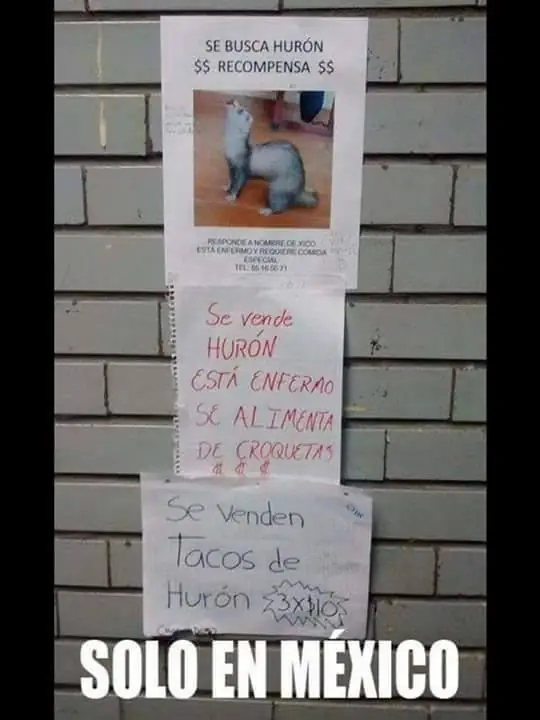 SE BUSCA HURÓN
$$ RECOMPENSA $$
RESPONDE A NOMBRE DE XICO
ESTÁ ENFERMO Y REQUIERE COMIDA
ESPECIAL
Se vende
HURÓN
ESTÁ ENFERMO
SE ALIMENTA
DE CROQUETAS
$ $ $
Se venden
Tacos de
Hurón 3x$10
SOLO EN MÉXICO